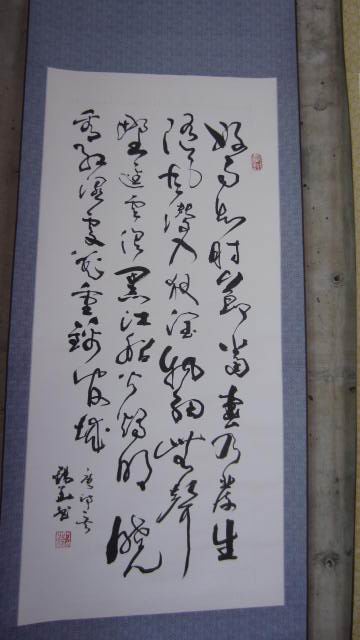 好雨知时節當春乃發生
隨風潛入夜潤物細無聲
野徑雲俱黑江船火獨明曉
看紅濕處花重錦官城